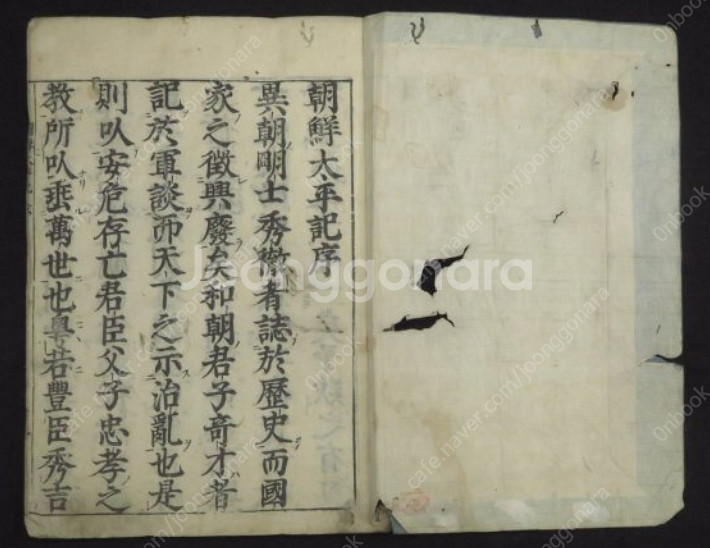 朝鮮太平記序
異朝明士秀徹者誌於歷史而國
家之徵興廢矣和朝君子奇才者
記於軍談而天下之示治亂也是
則以安危存亡君臣父子忠孝之
教所以垂萬世也粤若豐臣秀吉
Joonggonara
cafe.naver.com/joonggonara
Onbook